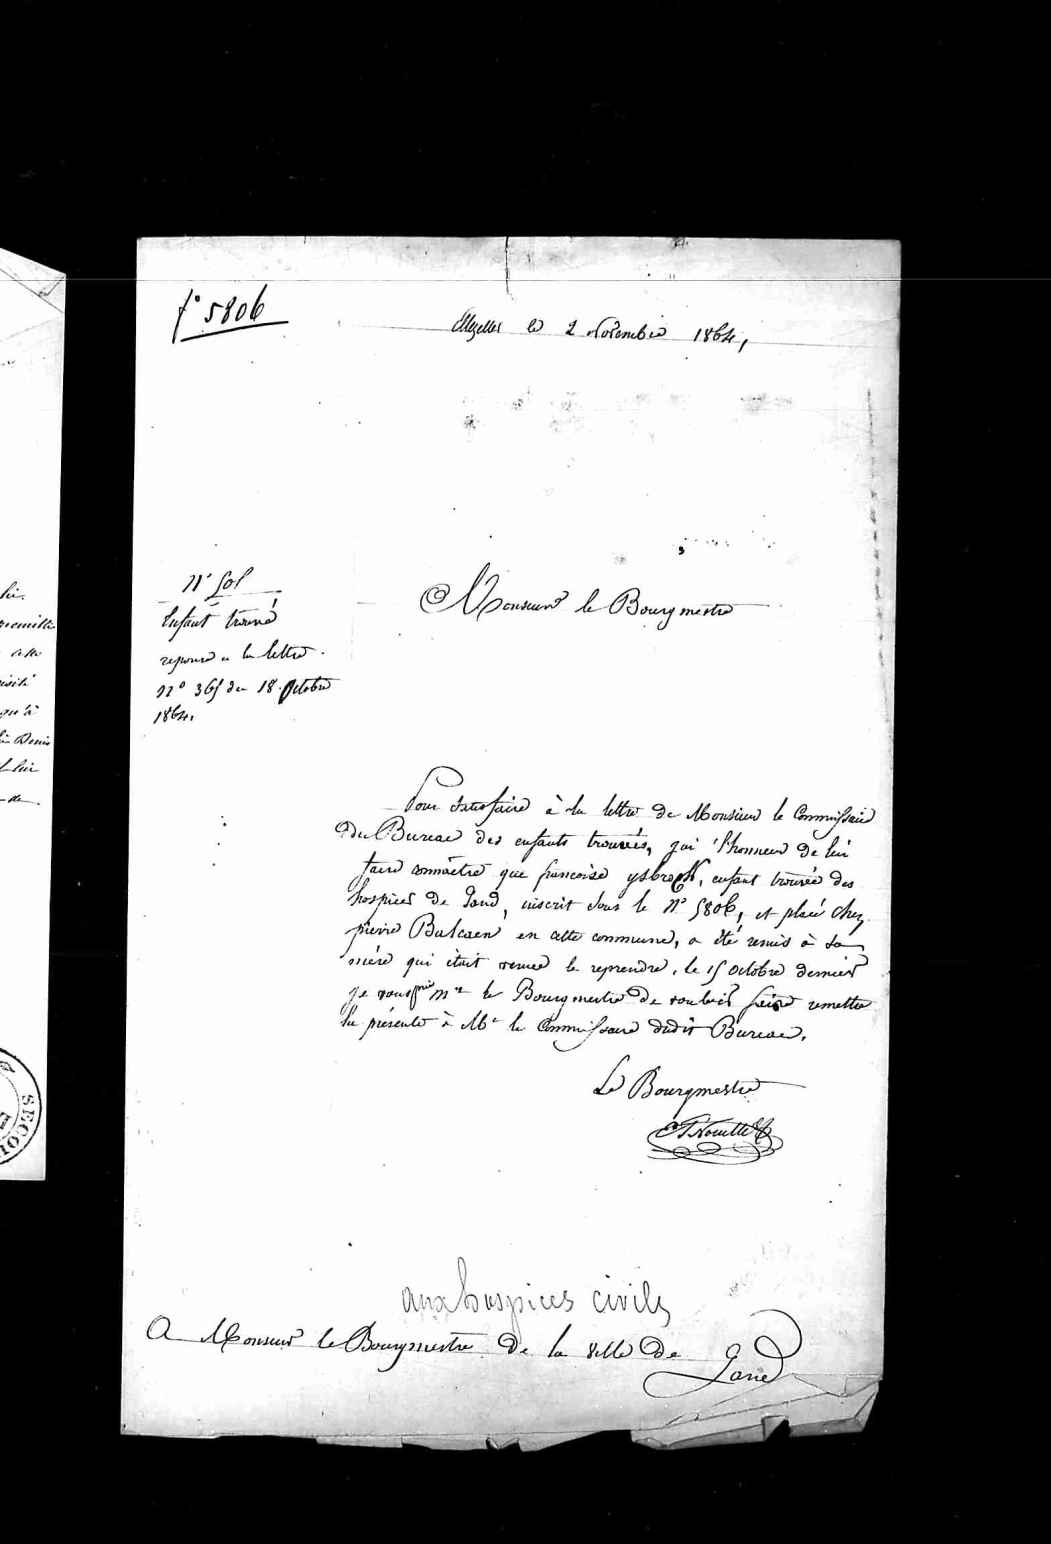 f° 5806
Ellezelles le 2 Novembre 1864,
N° 501
Enfant trouvé
reponse a la lettre
N° 365 du 18 Octobre
1864.
Monsieur le Bourgmestre
Pour satisfaire à la lettre de Monsieur le Commissaire
du Bureau des enfants trouvés, j'ai l'honneur de lui
faire connaître que francoise ysbreght, enfant trouvée des
hospices de Gand, inscrit sous le N° 5806, et placé chez
pierre Balcaen en cette commune, a été remis à sa
mére qui était venue le reprendre, le 15 octobre dernier
je vous prie Mr le Bourgmestre de vouloir faire remettre
la présente à Mr le Commissaire dudit Bureau.
Le Bourgmestre
aux hospices civils
A Monsieur le Bourgmestre de la ville de Gand
SECOU